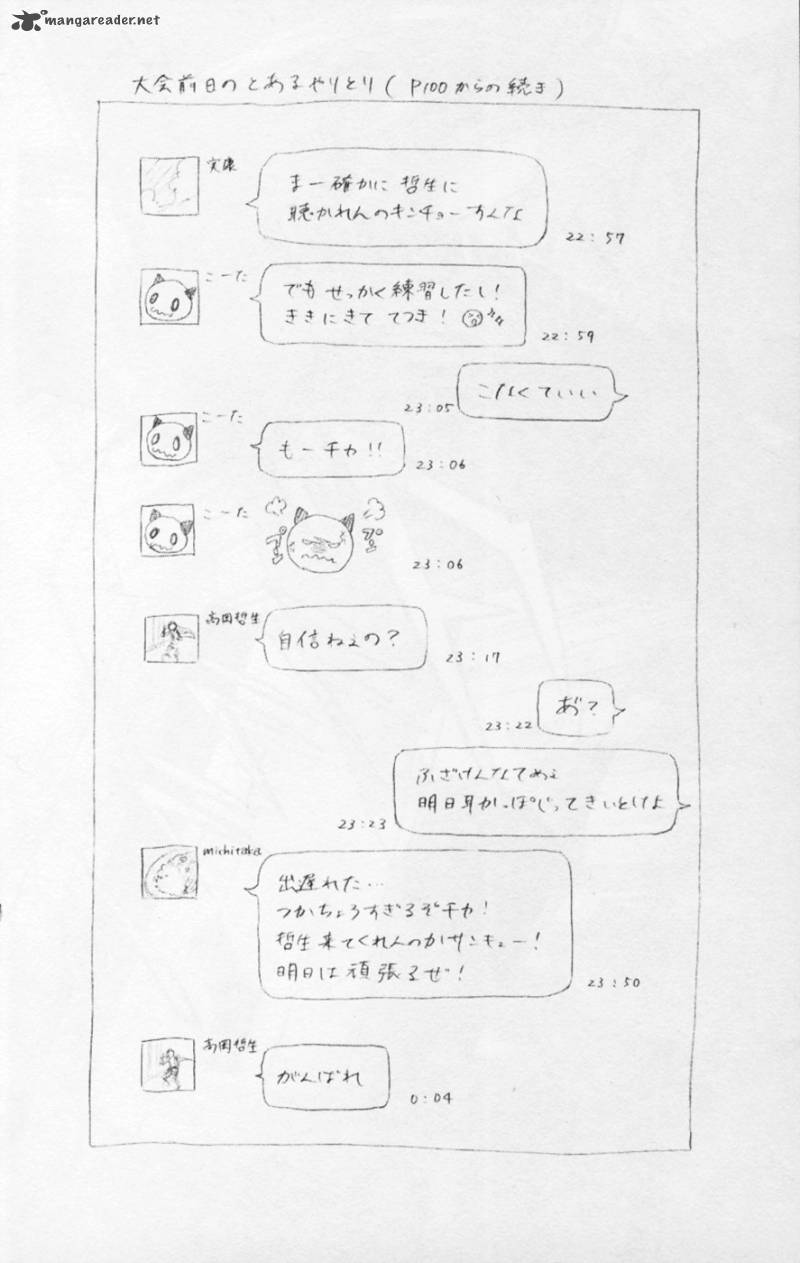 mangareader.net
大会前日のとあるやりとり(P100からの続き)
まー確かに哲生に
聴かれんのキンチョーすんな
22:57
こーた
でもせっかく練習したし!
ききにきて てつき!
22:59
こなくていい
23:05
こーた
もーチカ!!
23:06
こーた
プン
プン
23:06
高岡哲生
自信ねぇの?
23:17
あ゛?
23:22
ふざけんなてめぇ
明日耳かっぽじってきいとけよ
23:23
michitaka
出遅れた…
つかちょろすぎるぞチカ!
哲生来てくれんのかサンキュー!
明日は頑張るぜ!
23:50
高岡哲生
がんばれ
0:04